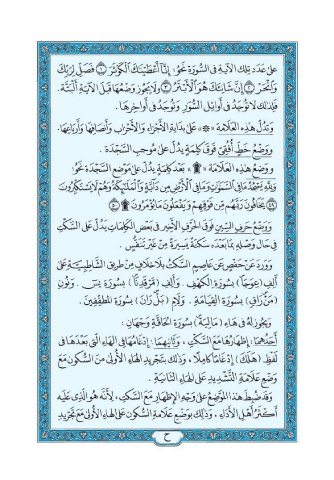 عَلَى عَدَدِ تِلْكَ الآيَةِ فِي السُّورَةِ نَحْوُ: إِنَّآ أَعْطَيْنَٰكَ ٱلْكَوْثَرَ ۝١ فَصَلِّ لِرَبِّكَ
وَٱنْحَرْ ۝٢ إِنَّ شَانِئَكَ هُوَ ٱلْأَبْتَرُ ۝٣ وَلَا يَجُوزُ وَضْعُهَا قَبْلَ الآيَةِ أَلْبَتَّةَ.
فَلِذَلِكَ لَا تُوجَدُ فِي أَوَائِلِ السُّوَرِ، وَتُوجَدُ فِي أَوَاخِرِهَا.
وَتَدُلُّ هَذِهِ العَلَامَةُ «۞» عَلَى بِدَايَةِ الأَجْزَاءِ وَالأَحْزَابِ وَأَنْصَافِهَا وَأَرْبَاعِهَا.
وَوَضْعُ خَطٍّ أُفُقِيٍّ فَوْقَ كَلِمَةٍ يَدُلُّ عَلَى مُوجِبِ السَّجْدَةِ.
وَوَضْعُ هَذِهِ العَلَامَةِ «۩» بَعْدَ كَلِمَةٍ يَدُلُّ عَلَى مَوْضِعِ السَّجْدَةِ نَحْوُ:
وَلِلَّهِ يَسْجُدُ مَا فِي ٱلسَّمَٰوَٰتِ وَمَا فِي ٱلْأَرْضِ مِن دَآبَّةٍ وَٱلْمَلَٰٓئِكَةُ وَهُمْ لَا يَسْتَكْبِرُونَ
۝٤٩ يَخَافُونَ رَبَّهُم مِّن فَوْقِهِمْ وَيَفْعَلُونَ مَا يُؤْمَرُونَ ۩ ۝٥٠
وَوَضْعُ حَرْفِ السِّينِ فَوْقَ الحَرْفِ الأَخِيرِ فِي بَعْضِ الكَلِمَاتِ يَدُلُّ عَلَى السَّكْتِ
فِي حَالِ وَصْلِهِ بِمَا بَعْدَهُ سَكْتَةً يَسِيرَةً مِنْ غَيْرِ تَنَفُّسٍ.
وَوَرَدَ عَنْ حَفْصٍ عَنْ عَاصِمٍ السَّكْتُ بِلَا خِلَافٍ مِنْ طَرِيقِ الشَّاطِبِيَّةِ عَلَى
أَلِفِ (عِوَجَاۜ) بِسُورَةِ الكَهْفِ. وَأَلِفِ (مَّرْقَدِنَاۜ) بِسُورَةِ يسٓ. وَنُونِ
(مَنْۜ رَاقٍ) بِسُورَةِ القِيَامَةِ. وَلَامِ (بَلْۜ رَانَ) بِسُورَةِ المُطَفِّفِينَ.
وَيَجُوزُ لَهُ فِي هَاءِ (مَالِيَهْۜ) بِسُورَةِ الحَاقَّةِ وَجْهَانِ:
أَحَدُهُمَا: إِظْهَارُهَا مَعَ السَّكْتِ، وَثَانِيهِمَا: إِدْغَامُهَا فِي الهَاءِ الَّتِي بَعْدَهَا فِي
لَفْظِ (هَلَكَ) إِدْغَامًا كَامِلًا، وَذَلِكَ بِتَجْرِيدِ الهَاءِ الأُولَى مِنَ السُّكُونِ مَعَ
وَضْعِ عَلَامَةِ التَّشْدِيدِ عَلَى الهَاءِ الثَّانِيَةِ.
وَقَدْ ضُبِطَ هَذَا المَوْضِعُ عَلَى وَجْهِ الإِظْهَارِ مَعَ السَّكْتِ، لِأَنَّهُ هُوَ الَّذِي عَلَيْهِ
أَكْثَرُ أَهْلِ الأَدَاءِ، وَذَلِكَ بِوَضْعِ عَلَامَةِ السُّكُونِ عَلَى الهَاءِ الأُولَى مَعَ تَجْرِيدِ
ح